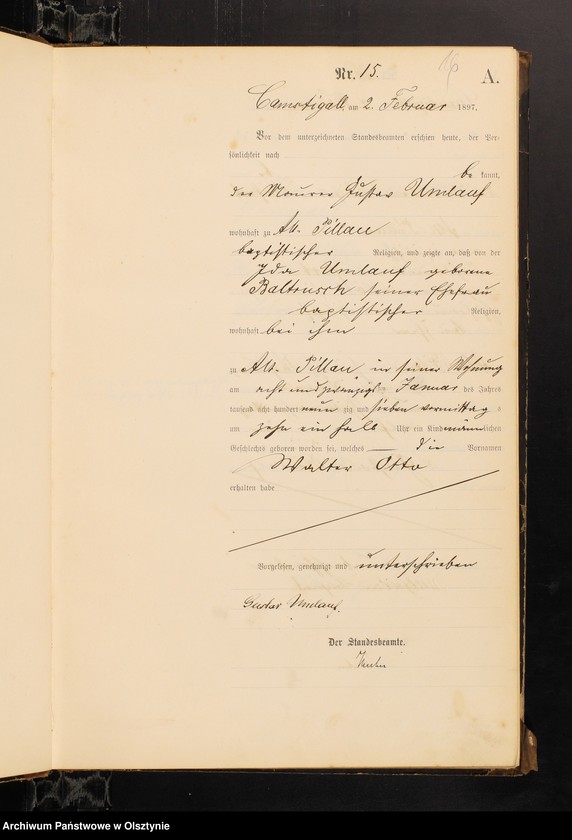 16
Nr. 15.
A.
Camstigall, am 2. Februar 1897.
Vor dem unterzeichneten Standesbeamten erschien heute, der Per-
sönlichkeit nach
be kannt,
der Maurer Gustav Umlauf
wohnhaft zu Alt-Pillau
baptistischer Religion, und zeigte an, daß von der
Ida Umlauf geborene
Baltrusch seiner Ehefrau
baptistischer Religion,
wohnhaft bei ihm
zu Alt-Pillau in seiner Wohnung
am acht und zwanzigsten Januar des Jahres
tausend acht hundert neun zig und sieben vormittag s
um zehn ein halb Uhr ein Kind männlichen
Geschlechts geboren worden sei, welches die Vornamen
Walter Otto
erhalten habe
Vorgelesen, genehmigt und unterschrieben
Gustav Umlauf.
Der Standesbeamte.
Archiwum Państwowe w Olsztynie